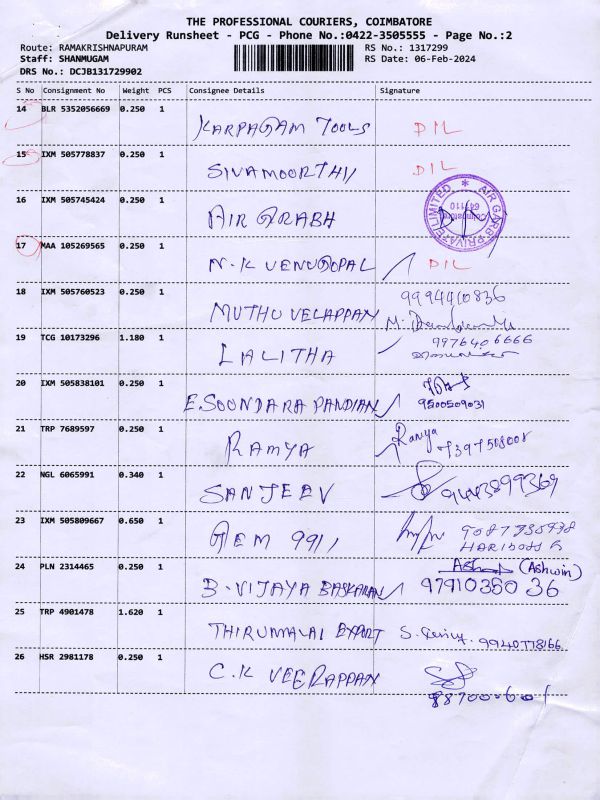 THE PROFESSIONAL COURIERS, COIMBATORE
Delivery Runsheet - PCG - Phone No.:0422-3505555 - Page No.:2
Route: RAMAKRISHNAPURAM RS No.: 1317299
Staff: SHANMUGAM RS Date: 06-Feb-2024
DRS No.: DCJB131729902
S No Consignment No Weight PCS Consignee Details Signature
14 BLR 5352056669 0.250 1 KARPAGAM TOOLS DIL
15 IXM 505778837 0.250 1 SIVAMOORTHY DIL
16 IXM 505745424 0.250 1 AIR GRABH
AIR GARB PRIVATE LIMITED
Coimbatore
641110
17 MAA 105269565 0.250 1 N.K VENUGOPAL DIL
18 IXM 505760523 0.250 1 MUTHU VELAPPAN 9994410836
19 TCG 10173296 1.180 1 LALITHA 9976406666
20 IXM 505838101 0.250 1 E.SOONDARA PANDIAN 9500509031
21 TRP 7689597 0.250 1 RAMYA Ranya 7397508008
22 NGL 6065991 0.340 1 SANJEEV 9443899369
23 IXM 505809667 0.650 1 GEM 9911
HARIDOSS R
24 PLN 2314465 0.250 1 B.VIJAYA BASKARAN (Ashwin)
97910350 36
25 TRP 4901478 1.620 1 THIRUMALAI EXPORT 9940778166
26 HSR 2981178 0.250 1 C.K VEERAPPAN